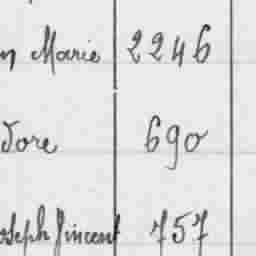 n Marie 2246
dore 690
oseph Vincent 757